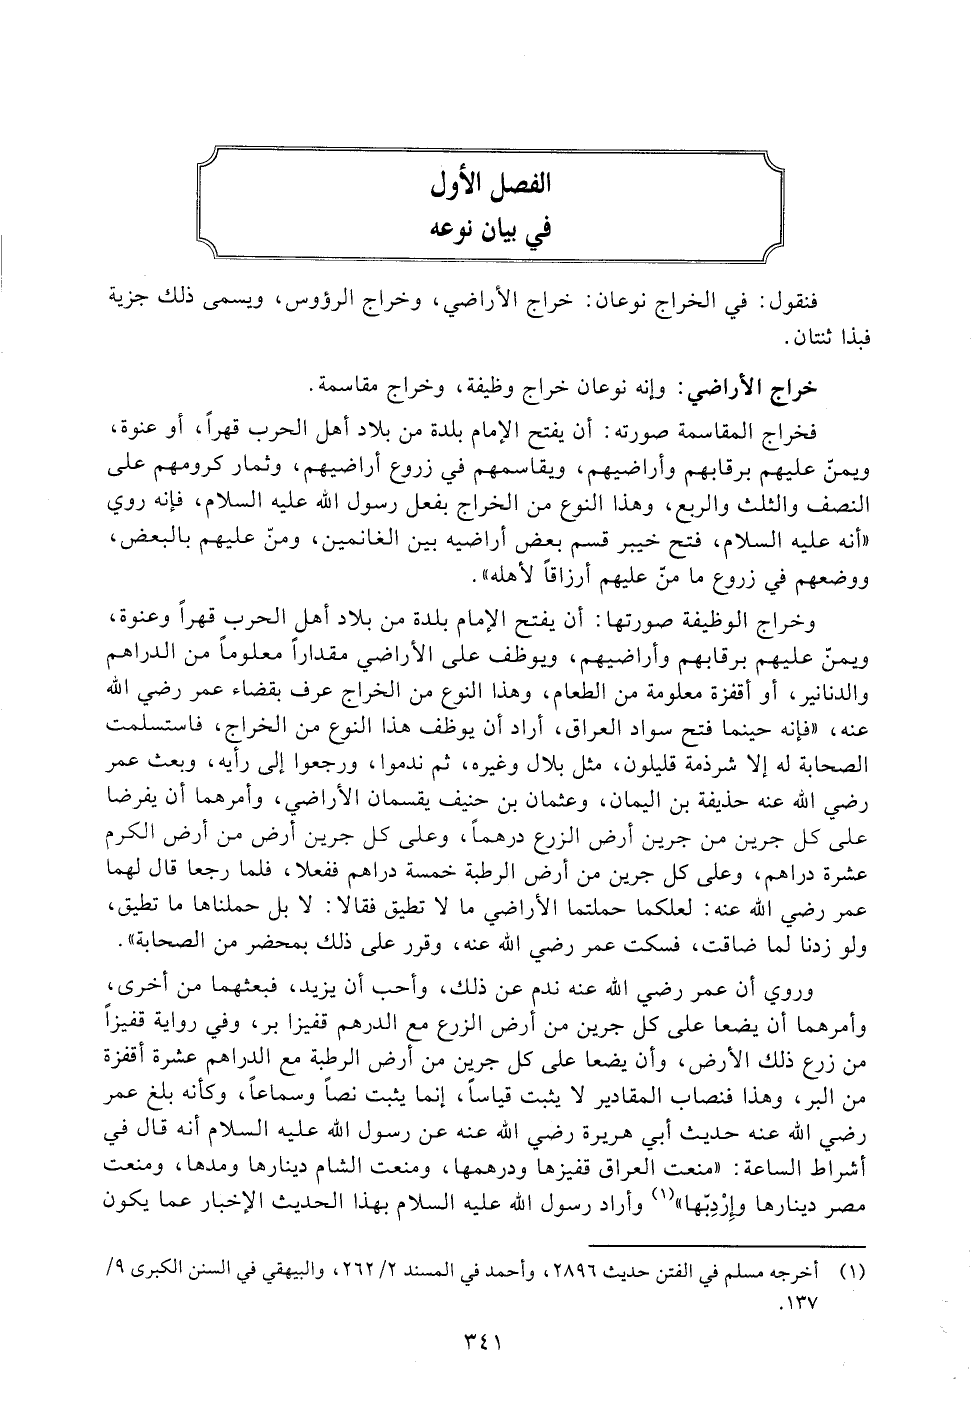 الفصل الأول
في بيان نوعه
فنقول: في الخراج نوعان: خراج الأراضي، وخراج الرؤوس، ويسمى ذلك جزية
فبذا ثنتان.
خراج الأراضي: وإنه نوعان خراج وظيفة، وخراج مقاسمة.
فخراج المقاسمة صورته: أن يفتح الإمام بلدة من بلاد أهل الحرب قهراً، أو عنوة،
ويمنّ عليهم برقابهم وأراضيهم، ويقاسمهم في زروع أراضيهم، وثمار كرومهم على
النصف والثلث والربع، وهذا النوع من الخراج بفعل رسول الله عليه السلام، فإنه روي
«أنه عليه السلام، فتح خيبر قسم بعض أراضيه بين الغانمين، ومنّ عليهم بالبعض،
ووضعهم في زروع ما منّ عليهم أرزاقاً لأهله».
وخراج الوظيفة صورتها: أن يفتح الإمام بلدة من بلاد أهل الحرب قهراً وعنوة،
ويمنّ عليهم برقابهم وأراضيهم، ويوظف على الأراضي مقداراً معلوماً من الدراهم
والدنانير، أو أقفزة معلومة من الطعام، وهذا النوع من الخراج عرف بقضاء عمر رضي الله
عنه، «فإنه حينما فتح سواد العراق، أراد أن يوظف هذا النوع من الخراج، فاستسلمت
الصحابة له إلا شرذمة قليلون، مثل بلال وغيره، ثم ندموا، ورجعوا إلى رأيه، وبعث عمر
رضي الله عنه حذيفة بن اليمان، وعثمان بن حنيف يقسمان الأراضي، وأمرهما أن يفرضا
على كل جرين من جرين أرض الزرع درهماً، وعلى كل جرين أرض من أرض الكرم
عشرة دراهم، وعلى كل جرين من أرض الرطبة خمسة دراهم ففعلا، فلما رجعا قال لهما
عمر رضي الله عنه: لعلكما حملتما الأراضي ما لا تطيق فقالا: لا بل حملناها ما تطيق،
ولو زدنا لما ضاقت، فسكت عمر رضي الله عنه، وقرر على ذلك بمحضر من الصحابة».
وروي أن عمر رضي الله عنه ندم عن ذلك، وأحب أن يزيد، فبعثهما من أخرى،
وأمرهما أن يضعا على كل جرين من أرض الزرع مع الدرهم قفيزا بر، وفي رواية قفيزاً
من زرع ذلك الأرض، وأن يضعا على كل جرين من أرض الرطبة مع الدراهم عشرة أقفزة
من البر، وهذا فنصاب المقادير لا يثبت قياساً، إنما يثبت نصاً وسماعاً، وكأنه بلغ عمر
رضي الله عنه حديث أبي هريرة رضي الله عنه عن رسول الله عليه السلام أنه قال في
أشراط الساعة: «منعت العراق قفيزها ودرهمها، ومنعت الشام دينارها ومدها، ومنعت
مصر دينارها وإرْدِبّها»(١) وأراد رسول الله عليه السلام بهذا الحديث الإخبار عما يكون
(١) أخرجه مسلم في الفتن حديث ٢٨٩٦، وأحمد في المسند ٢/ ٢٦٢، والبيهقي في السنن الكبرى ٩/
١٣٧.
٣٤١